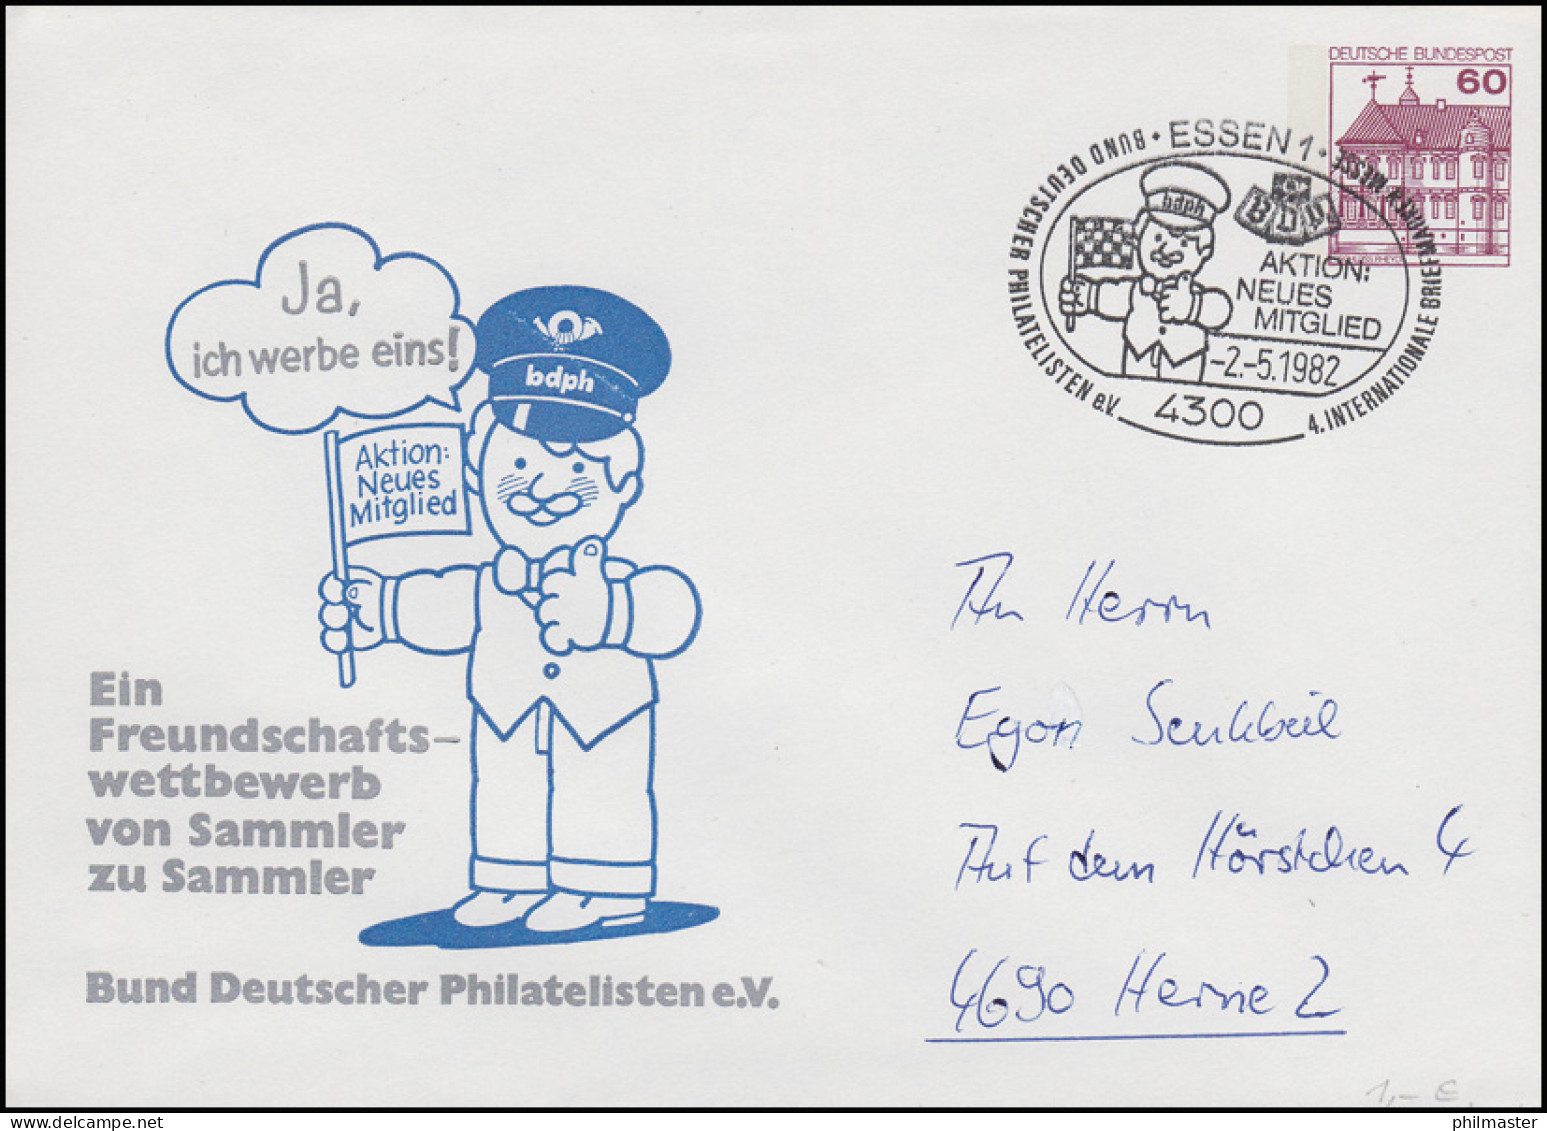 DEUTSCHE BUNDESPOST
60
BUND DEUTSCHER PHILATELISTEN e.V.
• ESSEN 1 •
4. INTERNATIONALE BRIEFMARKEN-MESSE
bdph
AKTION:
NEUES
MITGLIED
-2.-5.1982
4300
Ja,
ich werbe eins!
bdph
Aktion:
Neues
Mitglied
Ein
Freundschafts-
wettbewerb
von Sammler
zu Sammler
Bund Deutscher Philatelisten e.V.
An Herrn
Egon Senkbeil
Auf dem Hörstchen 4
4690 Herne 2
1,- €
philmaster